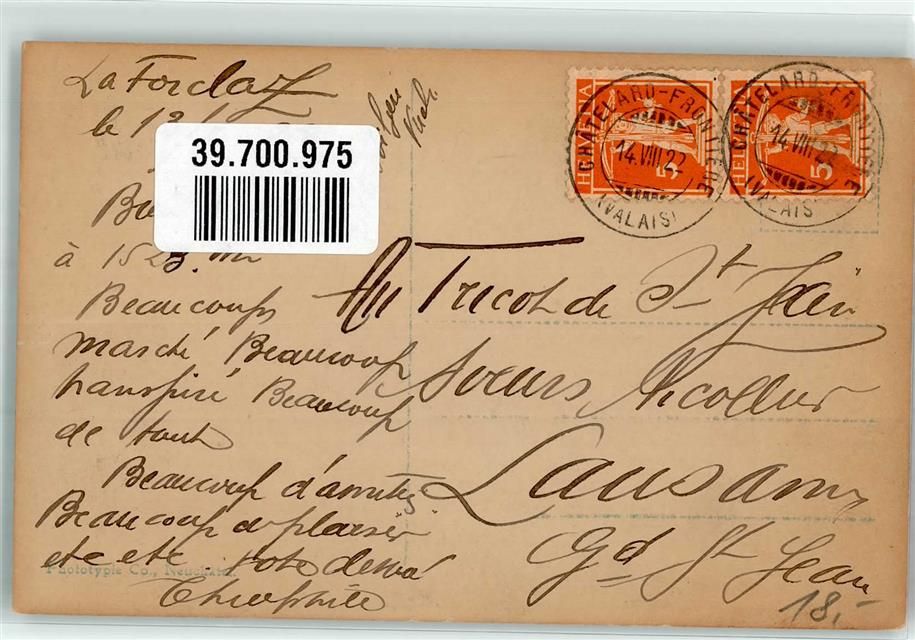 La Forclaz
le
39.700.975
à 1523. m
Beaucoup
marché Beaucoup
transpiré Beaucoup
de tout
Beaucoup d'amitiés
Beaucoup de plaisir
etc etc. votre dévoué
Théophile
Phototypie Co., Neuchâtel
HELVETIA
5
HELVETIA
5
CHÂTELARD-FRONTIÈRE
14.VIII.22
(VALAIS)
CHÂTELARD-FRONTIÈRE
14.VIII.22
(VALAIS)
Au Tricot de St Jean
Soeurs Nicollier
Lausanne
Gd St Jean
18.-